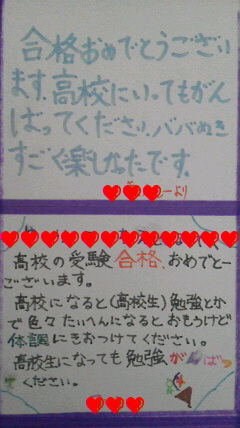 合格おめでとうござい
ます。高校にいってもがん
ばってください。ババぬき
すごく楽しかったです。
より
高校の受験合格、おめでとー
ございます。
高校になると(高校生)勉強とか
で色々たいへんになるとおもうけど
体調にきおつけてください。
高校生になっても勉強がんばっ
てください。